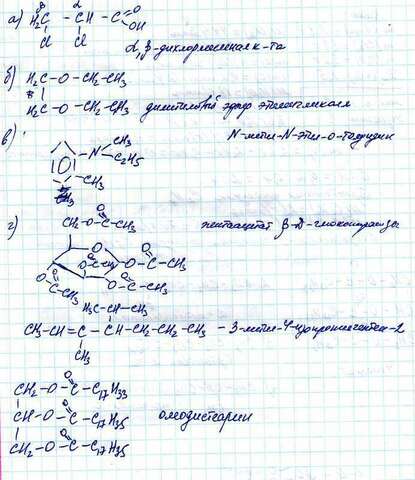 а) H₂C – CH – C=O
β α OH
Cl Cl
α,β-дихлормасляная к-та
б) H₂C – O – CH₂–CH₃
H₂C – O – CH₂–CH₃ диэтиловый эфир этиленгликоля
в) N-метил-N-этил-о-толуидин
N CH₃
C₂H₅
CH₃
г) CH₂–O–C–CH₃ пентаацетат β-D-глюкопиранозы
O
O O–C–CH₃
O–C–CH₃
O–C–CH₃
H₃C–CH–CH₃
CH₃–CH=C – CH–CH₂–CH₂–CH₃ – 3-метил-4-изопропилгептен-2
CH₃
CH₂–O–C–C₁₇H₃₃
CH–O–C–C₁₇H₃₅ олеодистеарин
CH₂–O–C–C₁₇H₃₅